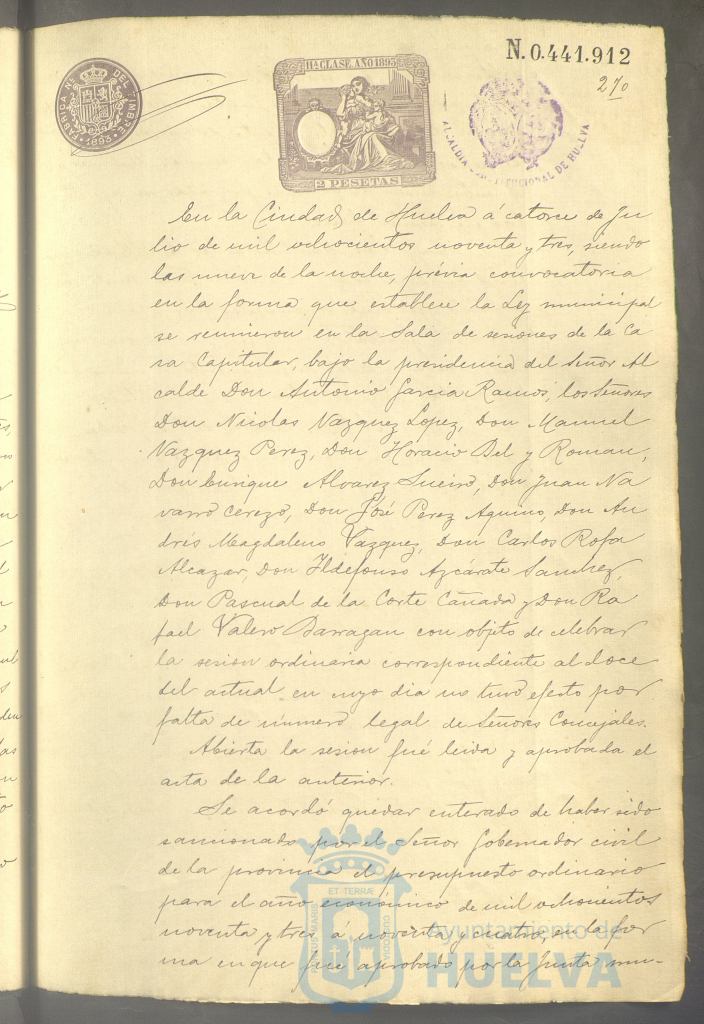 N. 0.441.912
270
FABRICA N.L DEL TIMBRE
1893
11ª CLASE. AÑO 1893
2 PESETAS
ALCALDIA CONSTITUCIONAL DE HUELVA
En la Ciudad de Huelva á catorce de Ju
lio de mil ochocientos noventa y tres, siendo
las nueve de la noche, prévia convocatoria
en la forma que establece la Ley municipal
se reunieron en la Sala de sesiones de la Ca
sa Capitular, bajo la presidencia del Señor Al
calde Don Antonio Garcia Ramos, los Señores
Don Nicolas Vazquez Lopez, Don Manuel
Vazquez Perez, Don Horacio Bel y Roman,
Don Enrique Alvarez Sueiro, Don Juan Na
varro Cerezo, Don José Perez Aquino, Don An
drés Magdaleno Vazquez, Don Carlos Rofa
Alcazar, Don Ildefonso Azcárate Sanchez,
Don Pascual de la Corte Cañada y Don Ra
fael Valero Barragan con objeto de celebrar
la sesion ordinaria correspondiente al doce
del actual en cuyo dia no tuvo efecto por
falta de número legal de Señores Concejales.
Abierta la sesion fué leida y aprobada el
acta de la anterior.
Se acordó quedar enterado de haber sido
sancionado por el Señor Gobernador civil
de la provincia el presupuesto ordinario
para el año económico de mil ochocientos
noventa y tres á noventa y cuatro, en la for
ma en que fué aprobado por la Junta mu-
ET TERRÆ
PORTUS MARIS
CUSTODIA
Ayuntamiento de
HUELVA